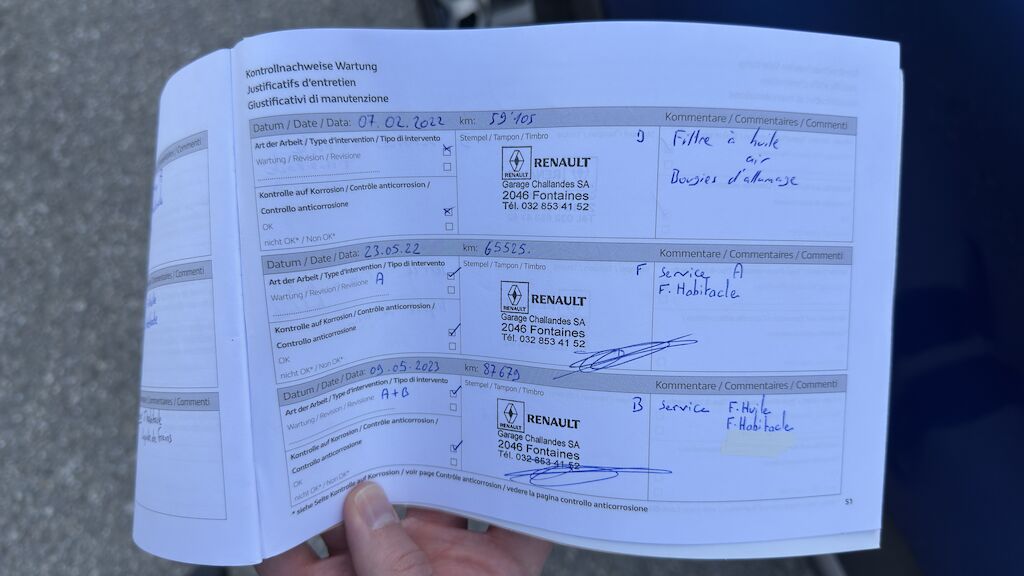 Kontrollnachweise Wartung
Justificatifs d'entretien
Giustificativi di manutenzione
Datum / Date / Data: 07.02.2022 km: 59'105 Kommentare / Commentaires / Commenti
Art der Arbeit / Type d'intervention / Tipo di intervento
Wartung / Revision / Revisione
Kontrolle auf Korrosion / Contrôle anticorrosion /
Controllo anticorrosione
OK
nicht OK* / Non OK*
Stempel / Tampon / Timbro
RENAULT
RENAULT
Garage Challandes SA
2046 Fontaines
Tél. 032 853 41 52
Filtre à huile
air
Bougies d'allumage
Datum / Date / Data: 23.05.22 km: 65525. Kommentare / Commentaires / Commenti
Art der Arbeit / Type d'intervention / Tipo di intervento
Wartung / Revision / Revisione A
Kontrolle auf Korrosion / Contrôle anticorrosion /
Controllo anticorrosione
OK
nicht OK* / Non OK*
Stempel / Tampon / Timbro
F
RENAULT
RENAULT
Garage Challandes SA
2046 Fontaines
Tél. 032 853 41 52
Service A
F. Habitacle
Datum / Date / Data: 09.05.2023 km: 87679 Kommentare / Commentaires / Commenti
Art der Arbeit / Type d'intervention / Tipo di intervento
Wartung / Revision / Revisione A+B
Kontrolle auf Korrosion / Contrôle anticorrosion /
Controllo anticorrosione
OK
nicht OK* / Non OK*
Stempel / Tampon / Timbro
B
RENAULT
RENAULT
Garage Challandes SA
2046 Fontaines
Tél. 032 853 41 52
Service F. Huile
F. Habitacle
* siehe Seite Kontrolle auf Korrosion / voir page Contrôle anticorrosion / vedere la pagina controllo anticorrosione